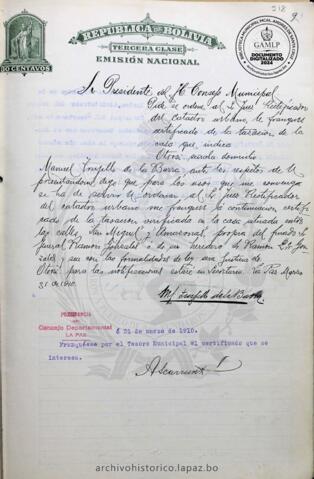 318
9
REPUBLICA DE BOLIVIA
TERCERA CLASE
EMISIÓN NACIONAL
30 CENTAVOS
GAMLP
DOCUMENTO
DIGITALIZADO
2024
Sr Presidente del H Consejo Municipal
Pide se ordene al Sr Juez Rectificador
del catastro urbano, le franquee
certificado de la tasacion de la
casa que indica
Otrosi señala domicilio
Manuel Trujillo de la Barra, ante los respetos de U
presentandome digo: que para los usos que me convenga
se ha de servir U ordenar al Sr Juez Rectificador
del catastro urbano me franquee á continuacion certifi-
cado de la tasacion verificada en la casa situada entre
las calles, San Miguel y Amazonas, propia del finado
Ramon Gonzales ó de su heredero Dr Ramon
zales, sea con las formalidades de ley sera Justicia
Otrosi, para las notificaciones estaré en Secretaria La Paz Marzo
31 de 1910.
M. Trujillo de la Barra
PRESIDENCIA
Concejo Departamental
LA PAZ
á 31 de marzo de 1910.
Franquéese por el Tesoro Municipal el certificado que se
interesa.
archivohistorico.lapaz.bo